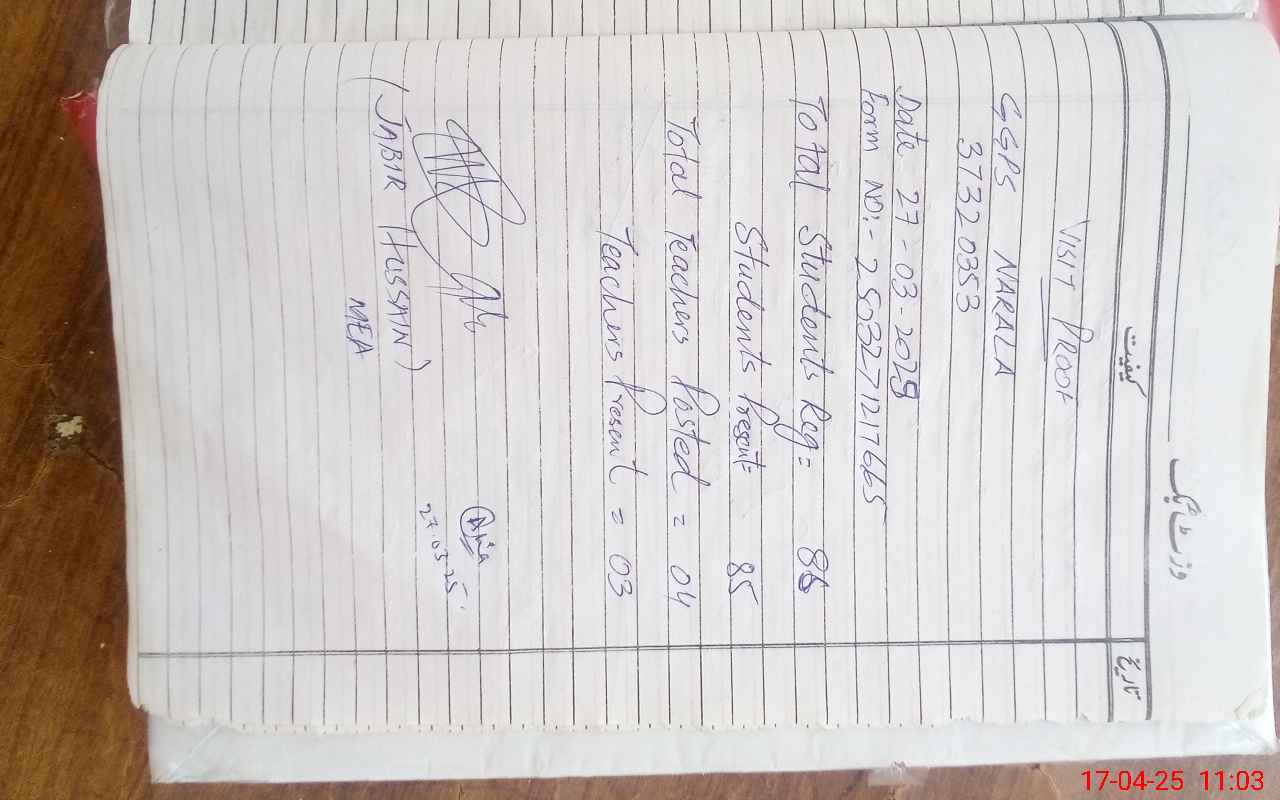 وزٹ بک
کیفیت
تاریخ
VISIT PROOF
GGPS NARALA
37320353
Date 27-03-2025
Form NO:- 2503271217665
Total Students Reg=
Students Present= 85
Total Teachers Posted = 04
Teachers Present = 03
27.03.25.
(JABIR HUSSAIN)
MEA
17-04-25 11:03